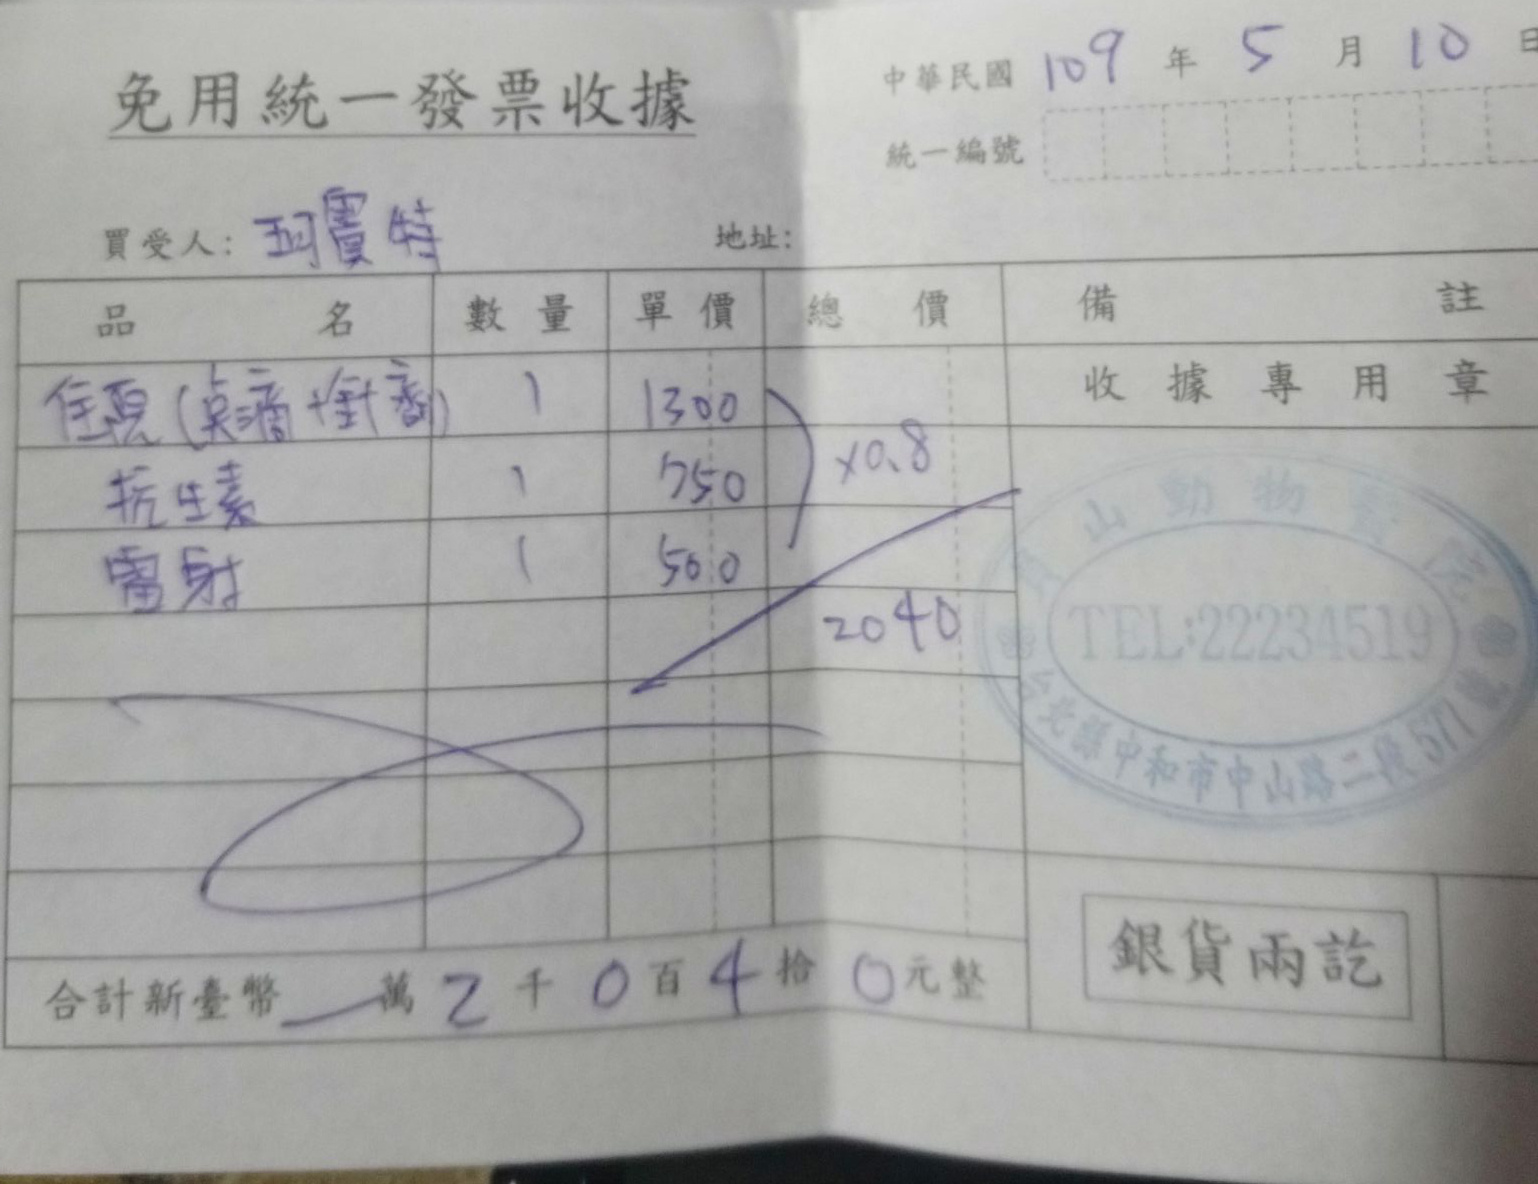 免用統一發票收據
中華民國 109 年 5 月 10 日
統一編號
買受人：珂賣特
地址：
品名 數量 單價 總價 備註
住院(點滴+針劑) 1 1300
收據專用章
抗生素 1 750 x0.8
雷射 1 500
2040
山動物醫院
TEL:22234519
台北縣中和市中山路二段577號
合計新臺幣 萬 2 千 0 百 4 拾 0 元整
銀貨兩訖